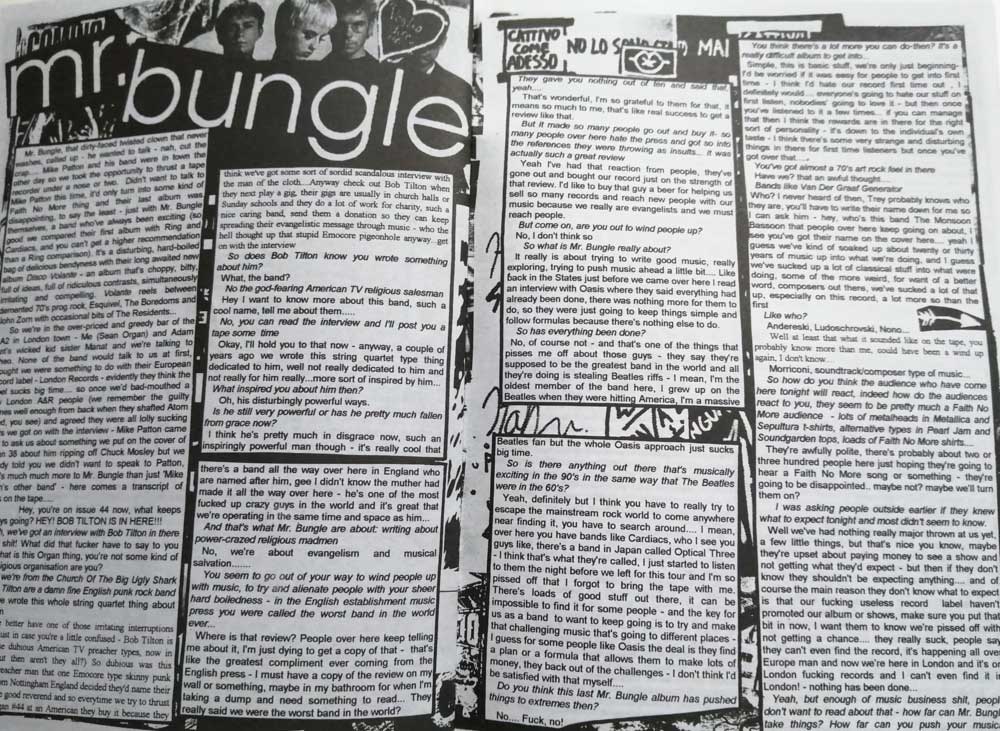 COMINO
mr. bungle
Mr. Bungle, that dirty-faced twisted clown that never
washes, called up - he wanted to talk - nah, cut the
crap.... Mike Patton and his band were in town the
other day so we took the opportunity to thrust a tape
recorder under a nose or two. Didn't want to talk to
Mike Patton this time, it'd only turn into some kind of
Faith No More thing and their last album was
disappointing, to say the least - just with Mr. Bungle
themselves, a band who've always been exciting (so
good we compared their first album with Ring and
Cardiacs, and you can't get a higher recommendation
than a Ring comparison). It's a disturbing, hard-boiled
bag of delicious bendyness with their long awaited new
album Disco Volante - an album that's choppy, bitty,
full of ideas, full of ridiculous contrasts, simultaneously
irritating and compelling. Volante reels between
demented 70's prog rock, Esquivel, The Boredoms and
John Zorn with occasional bits of The Residents...
So we're in the over-priced and greedy bar of the
A2 in London town - Me (Sean Organ) and Adam
wicked kid sister Marat and we're talking to
None of the band would talk to us at first,
thought we were something to do with their European
record label - London Records - evidently they think the
sucks big time.... so once we'd bad-mouthed a
London A&R people (we remember the guilty
ones well enough from back when they shafted Atom
you see) and agreed they were all lolly sucking
we got on with the interview - Mike Patton came
to ask us about something we put on the cover of
38 about him ripping off Chuck Mosley but we
told you we didn't want to speak to Patton,
much much more to Mr. Bungle than just 'Mike
other band' - here comes a transcript of
on the tape....
Hey, you're on issue 44 now, what keeps
going? HEY! BOB TILTON IS IN HERE!!!
we've got an interview with Bob Tilton in there
shit! What did that fucker have to say to you
what is this Organ thing, you're not some kind of
religious organisation are you?
we're from the Church Of The Big Ugly Shark
Tilton are a damn fine English punk rock band
we wrote this whole string quartet thing about
better have one of those irritating interruptions
just in case you're a little confused - Bob Tilton is
dubious American TV preacher types, now in
but then aren't they all?) So dubious was this
preacher man that one Emocore type skinny punk
from Nottingham England decided they'd name their
good reverend and so everytime we try to thrust
#44 at an American they buy it because they
think we've got some sort of sordid scandalous interview with
the man of the cloth....Anyway check out Bob Tilton when
they next play a gig, their gigs are usually in church halls or
Sunday schools and they do a lot of work for charity, such a
nice caring band, send them a donation so they can keep
spreading their evangelistic message through music - who the
hell thought up that stupid Emocore pigeonhole anyway..get
on with the interview
So does Bob Tilton know you wrote something
about him?
What, the band?
No the god-fearing American TV religious salesman
Hey I want to know more about this band, such a
cool name, tell me about them.....
No, you can read the interview and I'll post you a
tape some time
Okay, I'll hold you to that now - anyway, a couple of
years ago we wrote this string quartet type thing
dedicated to him, well not really dedicated to him and
not really for him really...more sort of inspired by him...
What inspired you about him then?
Oh, his disturbingly powerful ways.
Is he still very powerful or has he pretty much fallen
from grace now?
I think he's pretty much in disgrace now, such an
inspiringly powerful man though - it's really cool that
there's a band all the way over here in England who
are named after him, gee I didn't know the muther had
made it all the way over here - he's one of the most
fucked up crazy guys in the world and it's great that
we're operating in the same time and space as him...
And that's what Mr. Bungle are about: writing about
power-crazed religious madmen
No, we're about evangelism and musical
salvation.......
You seem to go out of your way to wind people up
with music, to try and alienate people with your sheer
hard boiledness - in the English establishment music
press you were called the worst band in the world
ever...
Where is that review? People over here keep telling
me about it, I'm just dying to get a copy of that - that's
like the greatest compliment ever coming from the
English press - I must have a copy of the review on my
wall or something, maybe in my bathroom for when I'm
taking a dump and need something to read... They
really said we were the worst band in the world?
CATTIVO
COME
ADESSO
NO LO SONO
MAI
They gave you nothing out of ten and said that,
yeah....
That's wonderful, I'm so grateful to them for that, it
means so much to me, that's like real success to get a
review like that.
But it made so many people go out and buy it- so
many people over here hate the press and got so into
the references they were throwing as insults... it was
actually such a great review
Yeah I've had that reaction from people, they've
gone out and bought our record just on the strength of
that review. I'd like to buy that guy a beer for helping us
sell so many records and reach new people with our
music because we really are evangelists and we must
reach people.
But come on, are you out to wind people up?
No, I don't think so
So what is Mr. Bungle really about?
It really is about trying to write good music, really
exploring, trying to push music ahead a little bit.... Like
back in the States just before we came over here I read
an interview with Oasis where they said everything had
already been done, there was nothing more for them to
do, so they were just going to keep things simple and
follow formulas because there's nothing else to do.
So has everything been done?
No, of course not - and that's one of the things that
pisses me off about those guys - they say they're
supposed to be the greatest band in the world and all
they're doing is stealing Beatles riffs - I mean, I'm the
oldest member of the band here, I grew up on the
Beatles when they were hitting America, I'm a massive
Beatles fan but the whole Oasis approach just sucks
big time.
So is there anything out there that's musically
exciting in the 90's in the same way that The Beatles
were in the 60's?
Yeah, definitely but I think you have to really try to
escape the mainstream rock world to come anywhere
near finding it, you have to search around.... I mean,
over here you have bands like Cardiacs, who I see you
guys like, there's a band in Japan called Optical Three
- I think that's what they're called, I just started to listen
to them the night before we left for this tour and I'm so
pissed off that I forgot to bring the tape with me.
There's loads of good stuff out there, it can be
impossible to find it for some people - and the key for
us as a band to want to keep going is to try and make
that challenging music that's going to different places -
I guess for some people like Oasis the deal is they find
a plan or a formula that allows them to make lots of
money, they back out of the challenges - I don't think I'd
be satisfied with that myself....
Do you think this last Mr. Bungle album has pushed
things to extremes then?
No.... Fuck, no!
You think there's a lot more you can do-then? It's a
really difficult album to get into...
Simple, this is basic stuff, we're only just beginning-
I'd be worried if it was easy for people to get into first
time - I think I'd hate our record first time out , I
definitely would... everyone's going to hate our stuff on
first listen, nobodies' going to love it - but then once
you've listened to it a few times... if you can manage
that then I think the rewards are in there for the right
sort of personality - it's down to the individual's own
taste - I think there's some very strange and disturbing
things in there for first time listeners but once you've
got over that....,
You've got almost a 70's art rock feel in there
Have we? that an awful thought.....
Bands like Van Der Graaf Generator
Who? I never heard of then, Trey probably knows who
they are, you'll have to write their name down for me so
I can ask him - hey, who's this band The Monsoon
Bassoon that people over here keep going on about, I
see you've got their name on the cover here.... yeah I
guess we've kind of soaked up about twenty or thirty
years of music up into what we're doing, and I guess
we've sucked up a lot of classical stuff into what were
doing, some of the more weird, for want of a better
word, composers out there, we've sucked a lot of that
up, especially on this record, a lot more so than the
first
Like who?
Andereski, Ludoschrovski, Nono...
Well at least that what it sounded like on the tape, you
probably know more than me, could have been a wind up
again, I don't know...
Morriconi, soundtrack/composer type of music...
So how do you think the audience who have come
here tonight will react, indeed how do the audiences
react to you, they seem to be pretty much a Faith No
More audience - lots of metalheads in Metallica and
Sepultura t-shirts, alternative types in Pearl Jam and
Soundgarden tops, loads of Faith No More shirts....
They're awfully polite, there's probably about two or
three hundred people here just hoping they're going to
hear a Faith No More song or something - they're
going to be disappointed.. maybe not? maybe we'll turn
them on?
I was asking people outside earlier if they knew
what to expect tonight and most didn't seem to know.
Well we've had nothing really major thrown at us yet,
a few little things, but that's nice you know, maybe
they're upset about paying money to see a show and
not getting what they'd expect - but then if they don't
know they shouldn't be expecting anything.... and of
course the main reason they don't know what to expect
is that our fucking useless record label haven't
promoted our album or shows, make sure you put that
bit in now, I want them to know we're pissed off with
not getting a chance.... they really suck, people say
they can't even find the record, it's happening all over
Europe man and now we're here in London and it's on
London fucking records and I can't even find it in
London! - nothing has been done...
Yeah, but enough of music business shit, people
don't want to read about that - how far can Mr. Bungle
take things? How far can you push your music